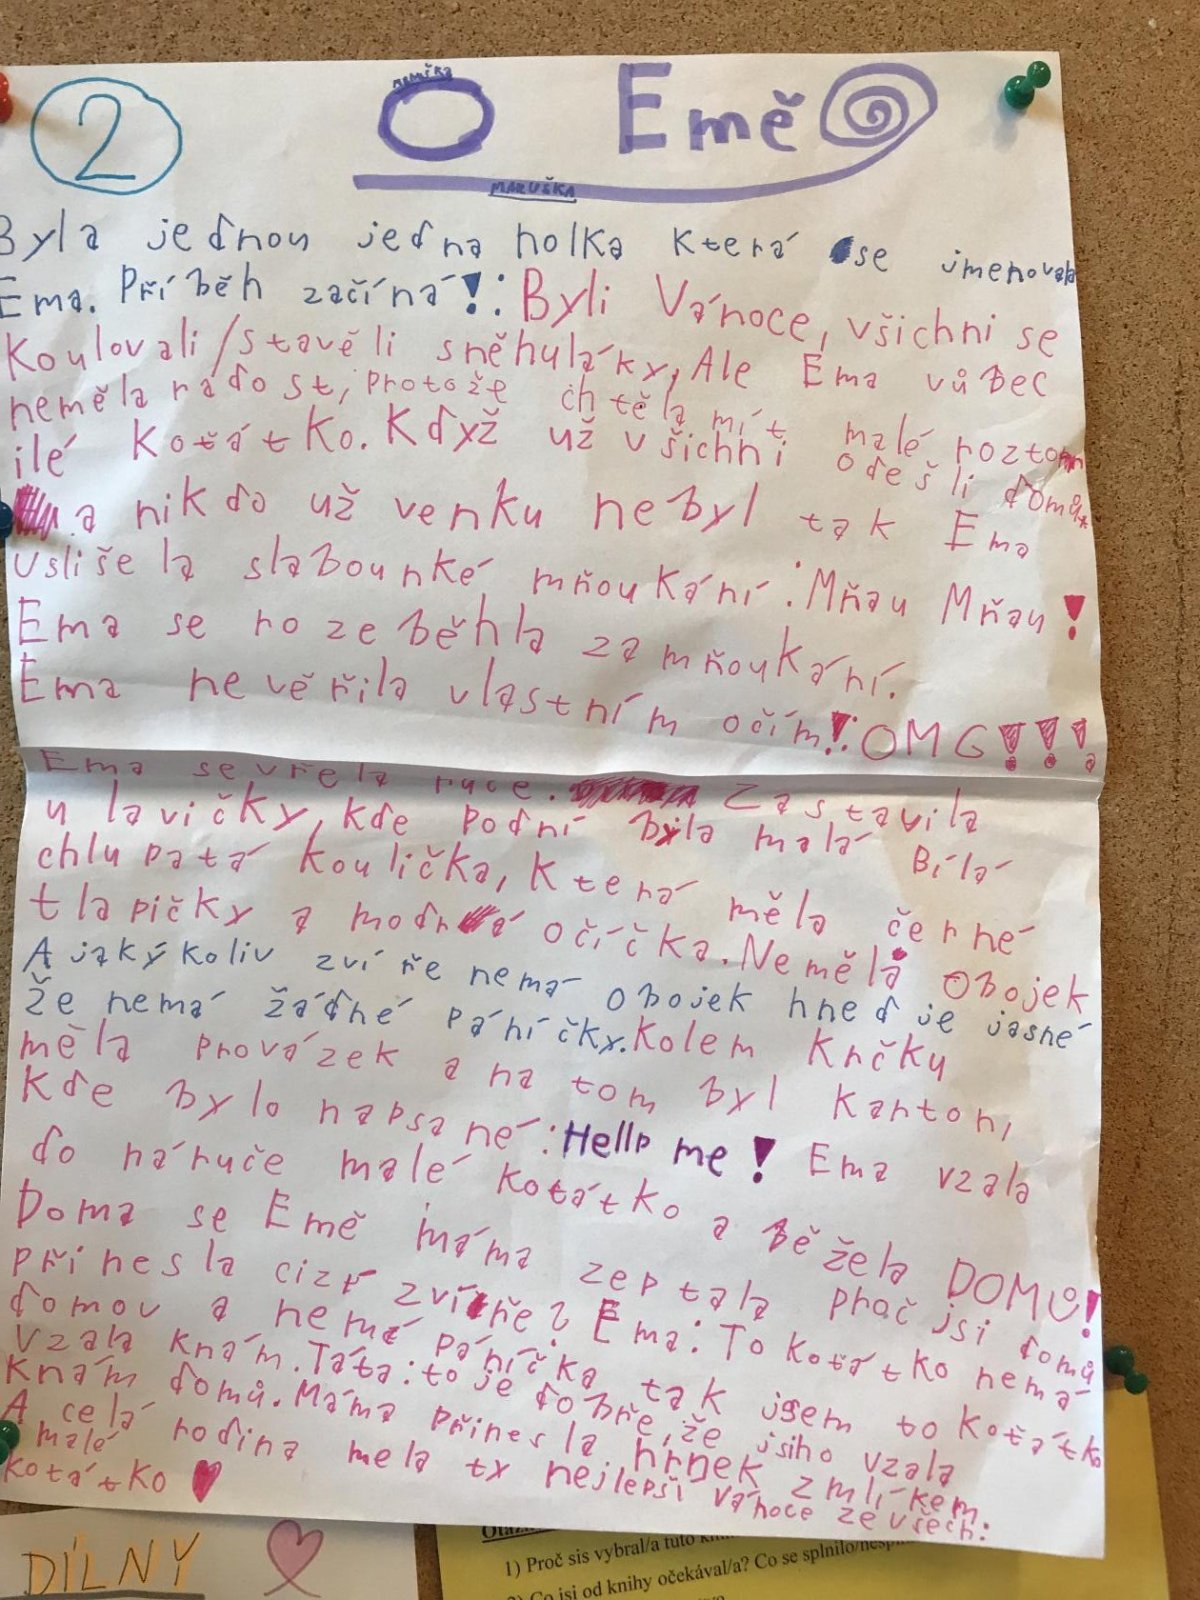 2
O Emě
MARUŠKA
Byla jednou jedna holka která se jmenovala
Ema. Příběh začíná!: Byli Vánoce, všichni se
koulovali/stavěli sněhuláky, Ale Ema vůbec
neměla radost, protože chtěla mít malé roztom
ilé koťátko. Když už všichni odešli domů
a nikdo už venku nebyl tak Ema
uslišela slabounké mňoukání: Mňau Mňau!
Ema se rozeběhla za mňoukání.
Ema nevěřila vlastním očím!: OMG!!!
Ema sevřela ruce. Zastavila
u lavičky, kde podní byla malá Bílá
chlupatá koulička, která měla černé
tlapičky a modrá očíčka. Neměla obojek
A jakýkoliv zvíře nemá obojek hned je jasné
že nemá žádné páníčky. Kolem krčku
měla provázek a na tom byl karton,
kde bylo napsané: Hellp me! Ema vzala
do náruče malé koťátko a Běžela DOMŮ!
Doma se Emě máma zeptala prač jsi domů
přinesla cizí zvíře? Ema: To koťátko nemá
domov a nemá páníčka tak jsem to koťátko
vzala knám. Táta: to je dobře, že jsiho vzala
knám domů. Máma přinesla hrnek zmlíkem.
A celá rodina mela ty nejlepší vánoce ze všech:
malé
koťátko
DÍLNY
1) Proč sis vybral/a tuto
Co jsi od knihy očekával/a? Co se splnilo/